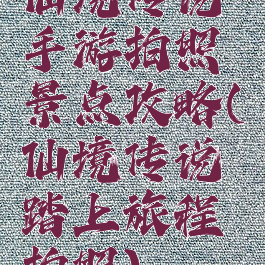 仙境传说
手游拍照
景点攻略(
仙境传说
踏上旅程
拍照)